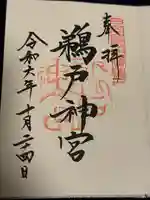 奉拝
鵜戸神宮
令和六年十月二十四日